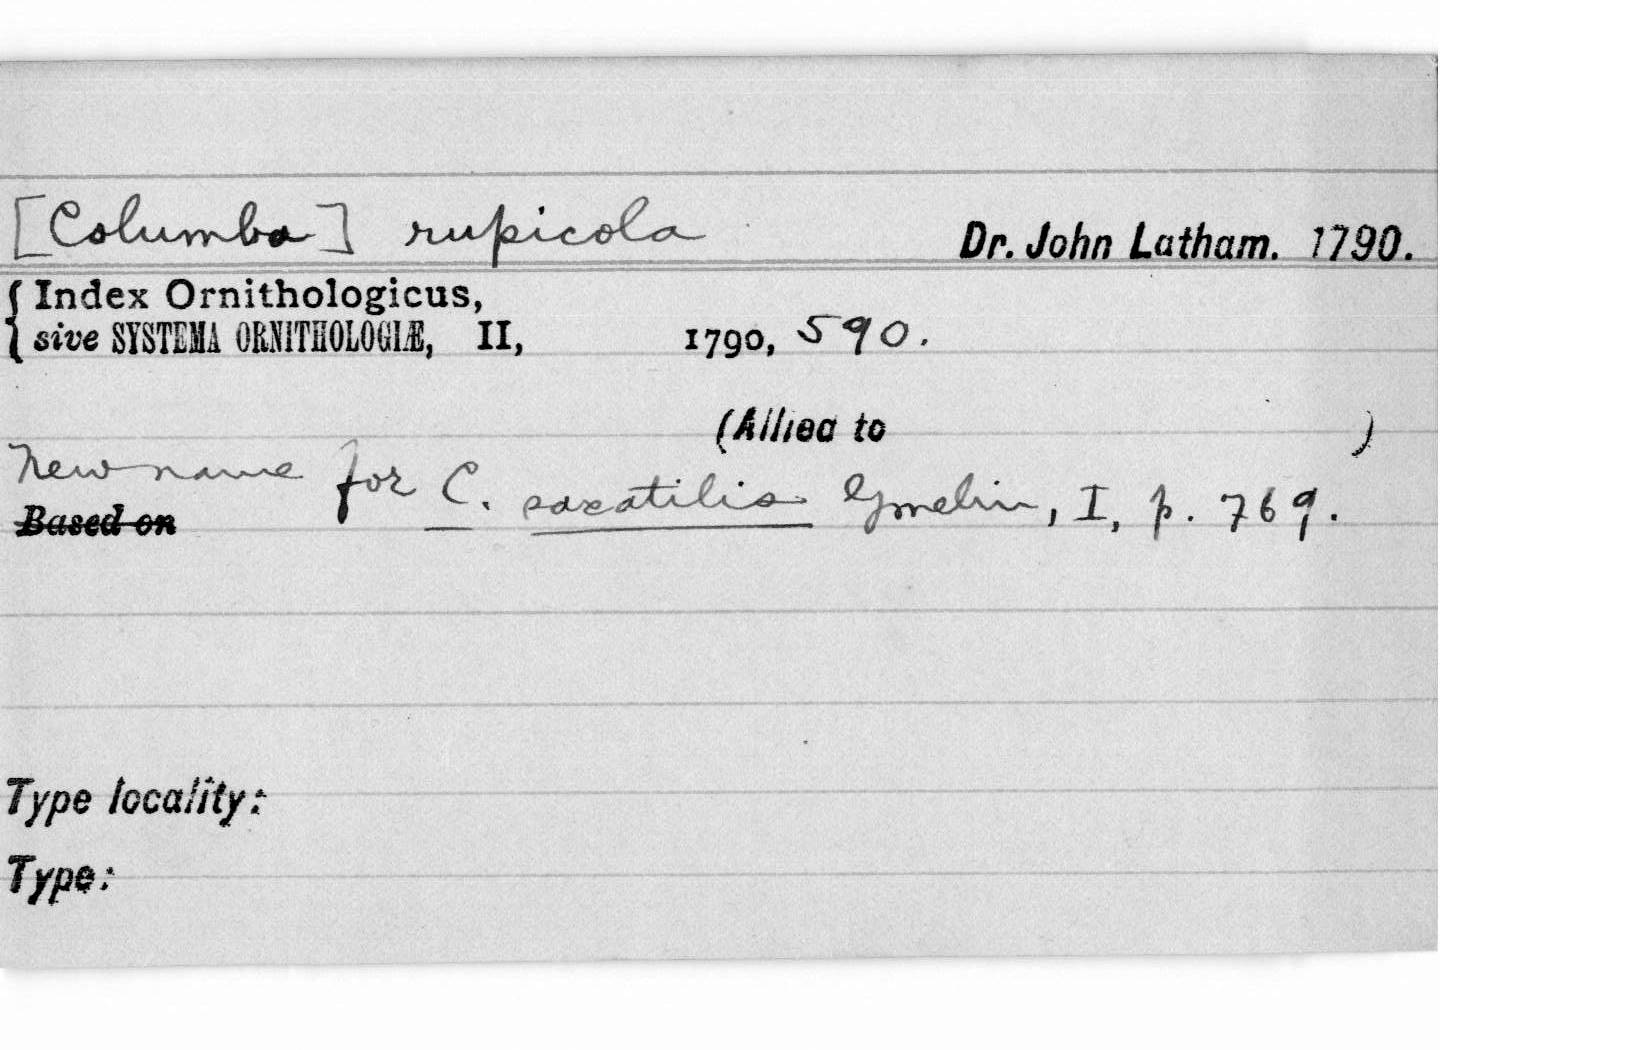 [Columba] rupicola Dr. John Latham. 1790.
{ Index Ornithologicus,
sive SYSTEMA ORNITHOLOGIÆ, II, 1790, 590.
(Allied to )
New name for C. saxatilis Gmelin, I, p. 769.
Based on
Type locality:
Type: